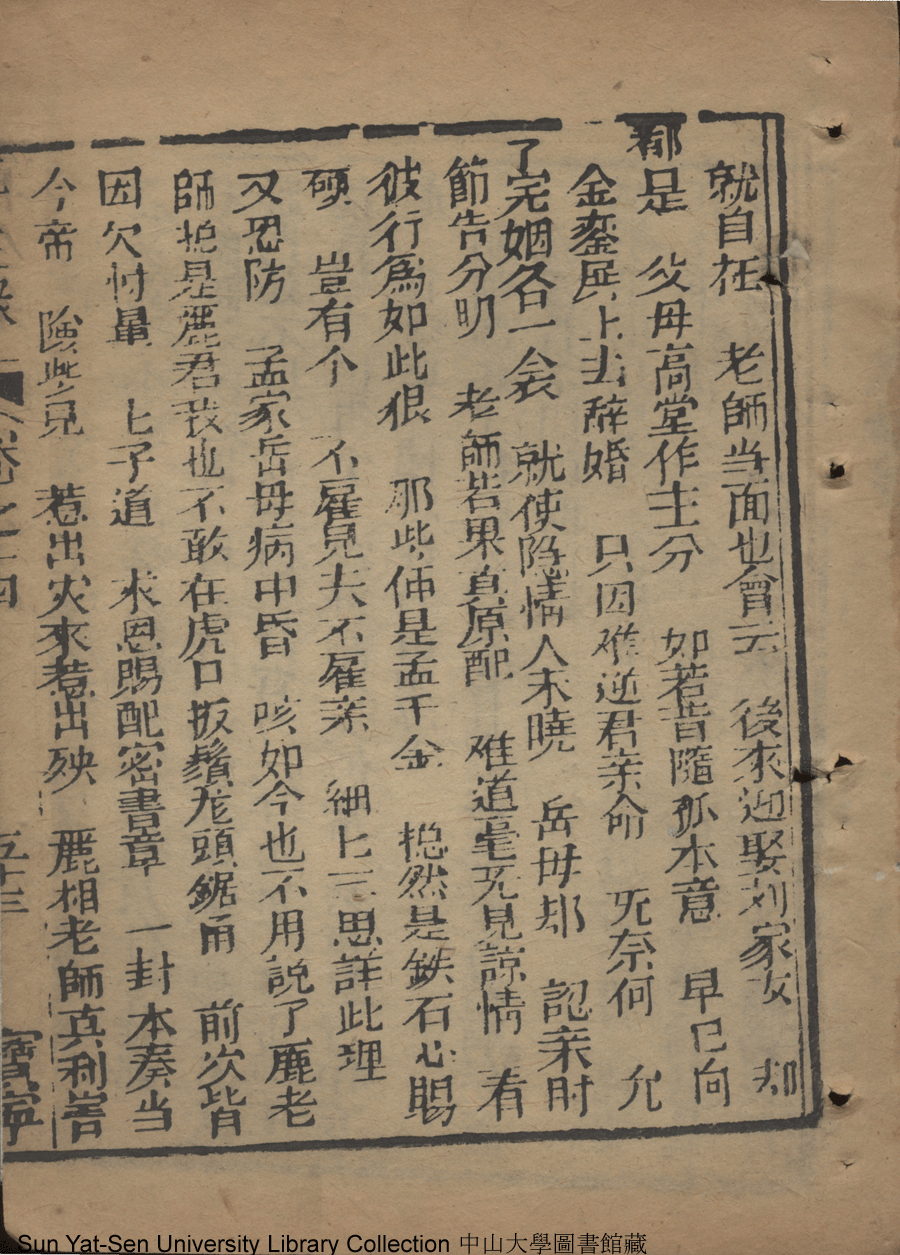 就自在　老師当面也會云　後來迎娶刘家女　却
都是　父母高堂作主分　如若昔隨孤本意　早已向
金鑾殿上去辞婚　只因难逆君亲命　旡奈何　允
了完姻各一衾　就使隐情人未曉　岳母却　認亲时
節告分明　老師若果真原配　难道毫旡見諒情　看
彼行爲如此狠　那些価是孟千金　抱然是鉄石心賜
硬　豈有个　不雇兒夫不雇亲　細匕三思詳此理
又恐防　孟家岳母病中昏　咳如今也不用説了鹿老
師抱是麗君我也不敢在虎口扳鬚龙頭鋸角　前次皆
因欠忖量　匕子道　求恩賜配密書章　一封本奏当
今帝　險些兒　惹出灾來惹出殃　鹿相老師真利害
卷之十四
五十三
寶寧
Sun Yat-Sen University Library Collection 中山大學圖書館藏